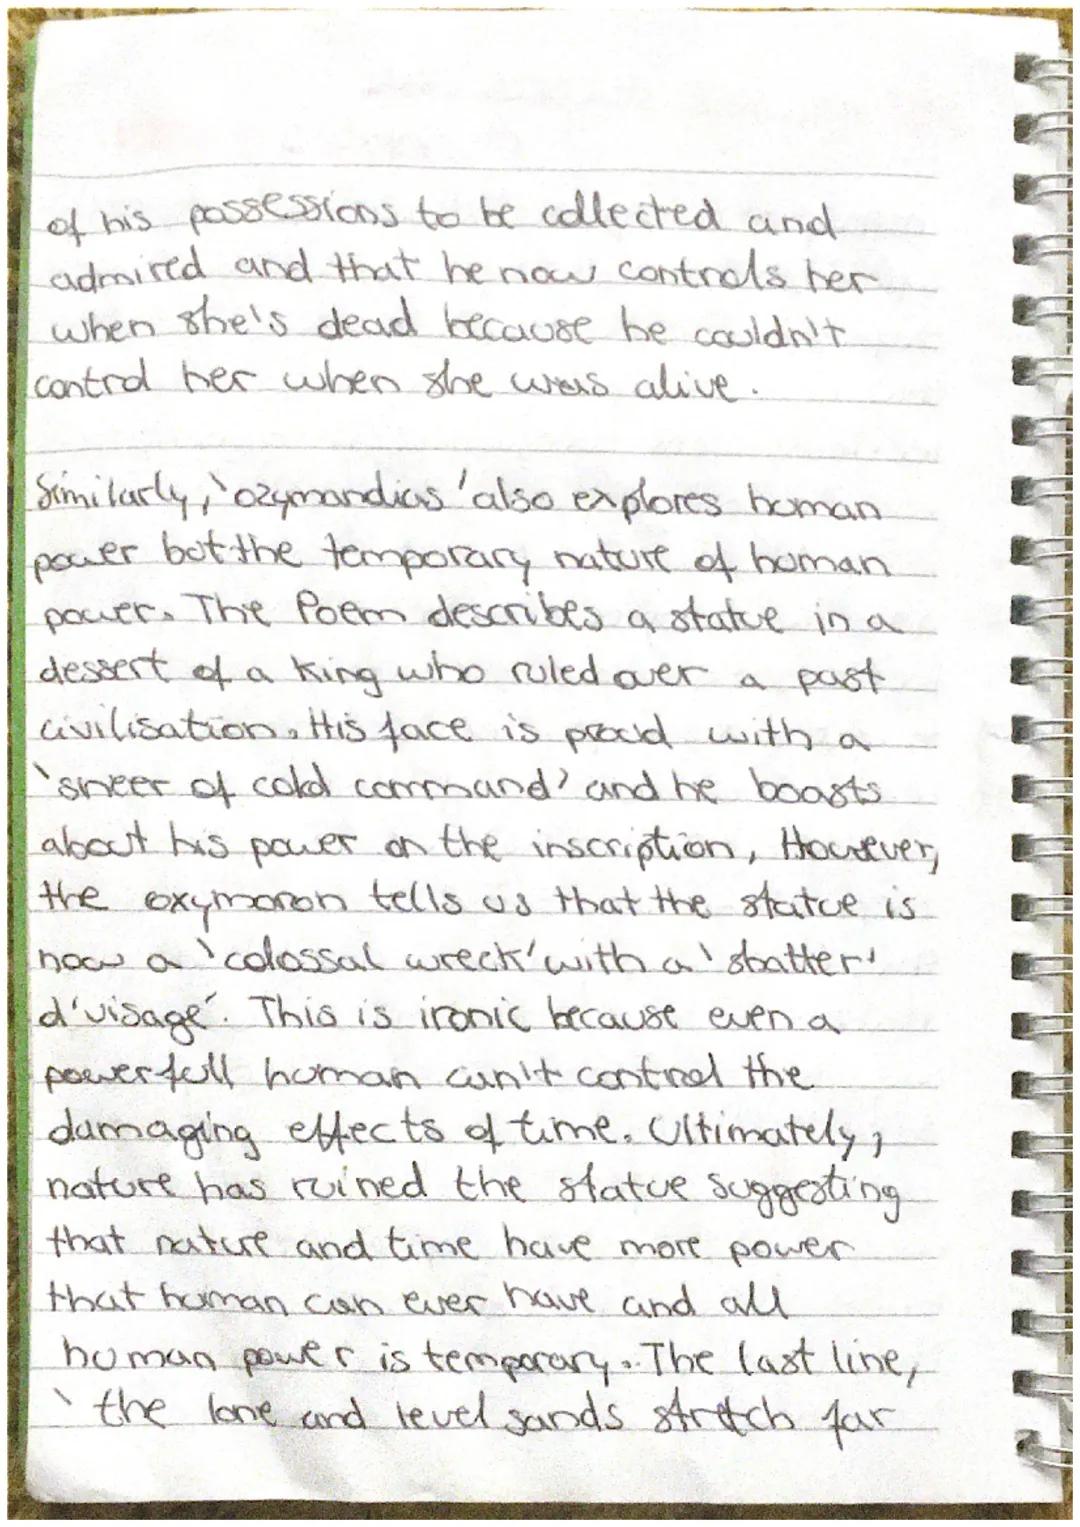 of his possessions to be collected and
admired and that he now controls her
when she's dead because he couldn't
control her when she was alive.
Similarly, 'ozymandias' also explores human
power but the temporary nature of human
power. The Poem describes a statue in a
dessert of a King who ruled over a past
civilisation. His face is proud with a
'sneer of cold command' and he boasts
about his power on the inscription, However,
the oxymoron tells us that the statue is
now a 'colossal wreck' with a 'shatter'
d'visage'. This is ironic because even a
powerfull human can't control the
damaging effects of time. Ultimately,
nature has ruined the statue suggesting
that nature and time have more power
that human can ever have and all
human power is temporary. The last line,
'the lone and level sands stretch far